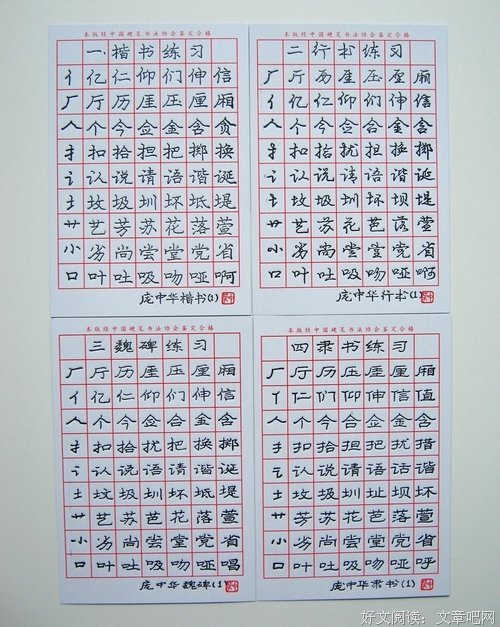 本版经中国硬笔书法协会鉴定合格
一.楷书练习
亻亿仁仰们伸信
厂厅历厓压厘厢
人个今佥金含贪
扌扣拾担把掷换
讠认说请语谐诞
土坟圾圳坏坻堤
艹艺芳苏花落萱
小劣尚尝堂党省
口叶吐吸吻哑啊
庞中华楷书(1)
本版经中国硬笔书法协会鉴定合格
二行书练习
厂厅历厓压厘厢
亻亿仁仰们伸信
人个今佥合金含
扌扣拾扰担换掷
讠认说请语谐诞
土坟圾圳坏坝堤
艹艺苏花芭落萱
小劣尚尝堂党省
口叶吐吸吻哑啊
庞中华行书(1)
本版经中国硬笔书法协会鉴定合格
三魏碑练习
厂厅历厓压厘厢
亻亿仁仰们伸信
人个今企合金含
扌扣拾扰把换掷
讠认说语请谐诞
土坟圾圳坏坻堤
艹艺苏芭花落萱
小劣尚尝堂党省
口叶吐吸吻哑唱
庞中华魏碑(1)
本版经中国硬笔书法协会鉴定合格
四隶书练习
厂厅历压厓厘厢
亻仁们仰伸信值
人个今合企金含
扌扣拾担把扰措
讠认说请语话谐
土坟圾圳址坝坏
艹芳苏花芭落萱
小劣尚尝堂党省
口叶吐吸吻哑呼
庞中华隶书(1)
好文阅读：文章吧网